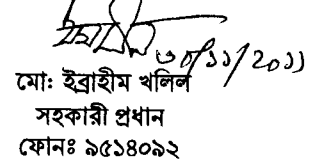 ৩০/১১/২০১১
মো: ইব্রাহীম খলিল
সহকারী প্রধান
ফোনঃ ৯৫১৪০৯২